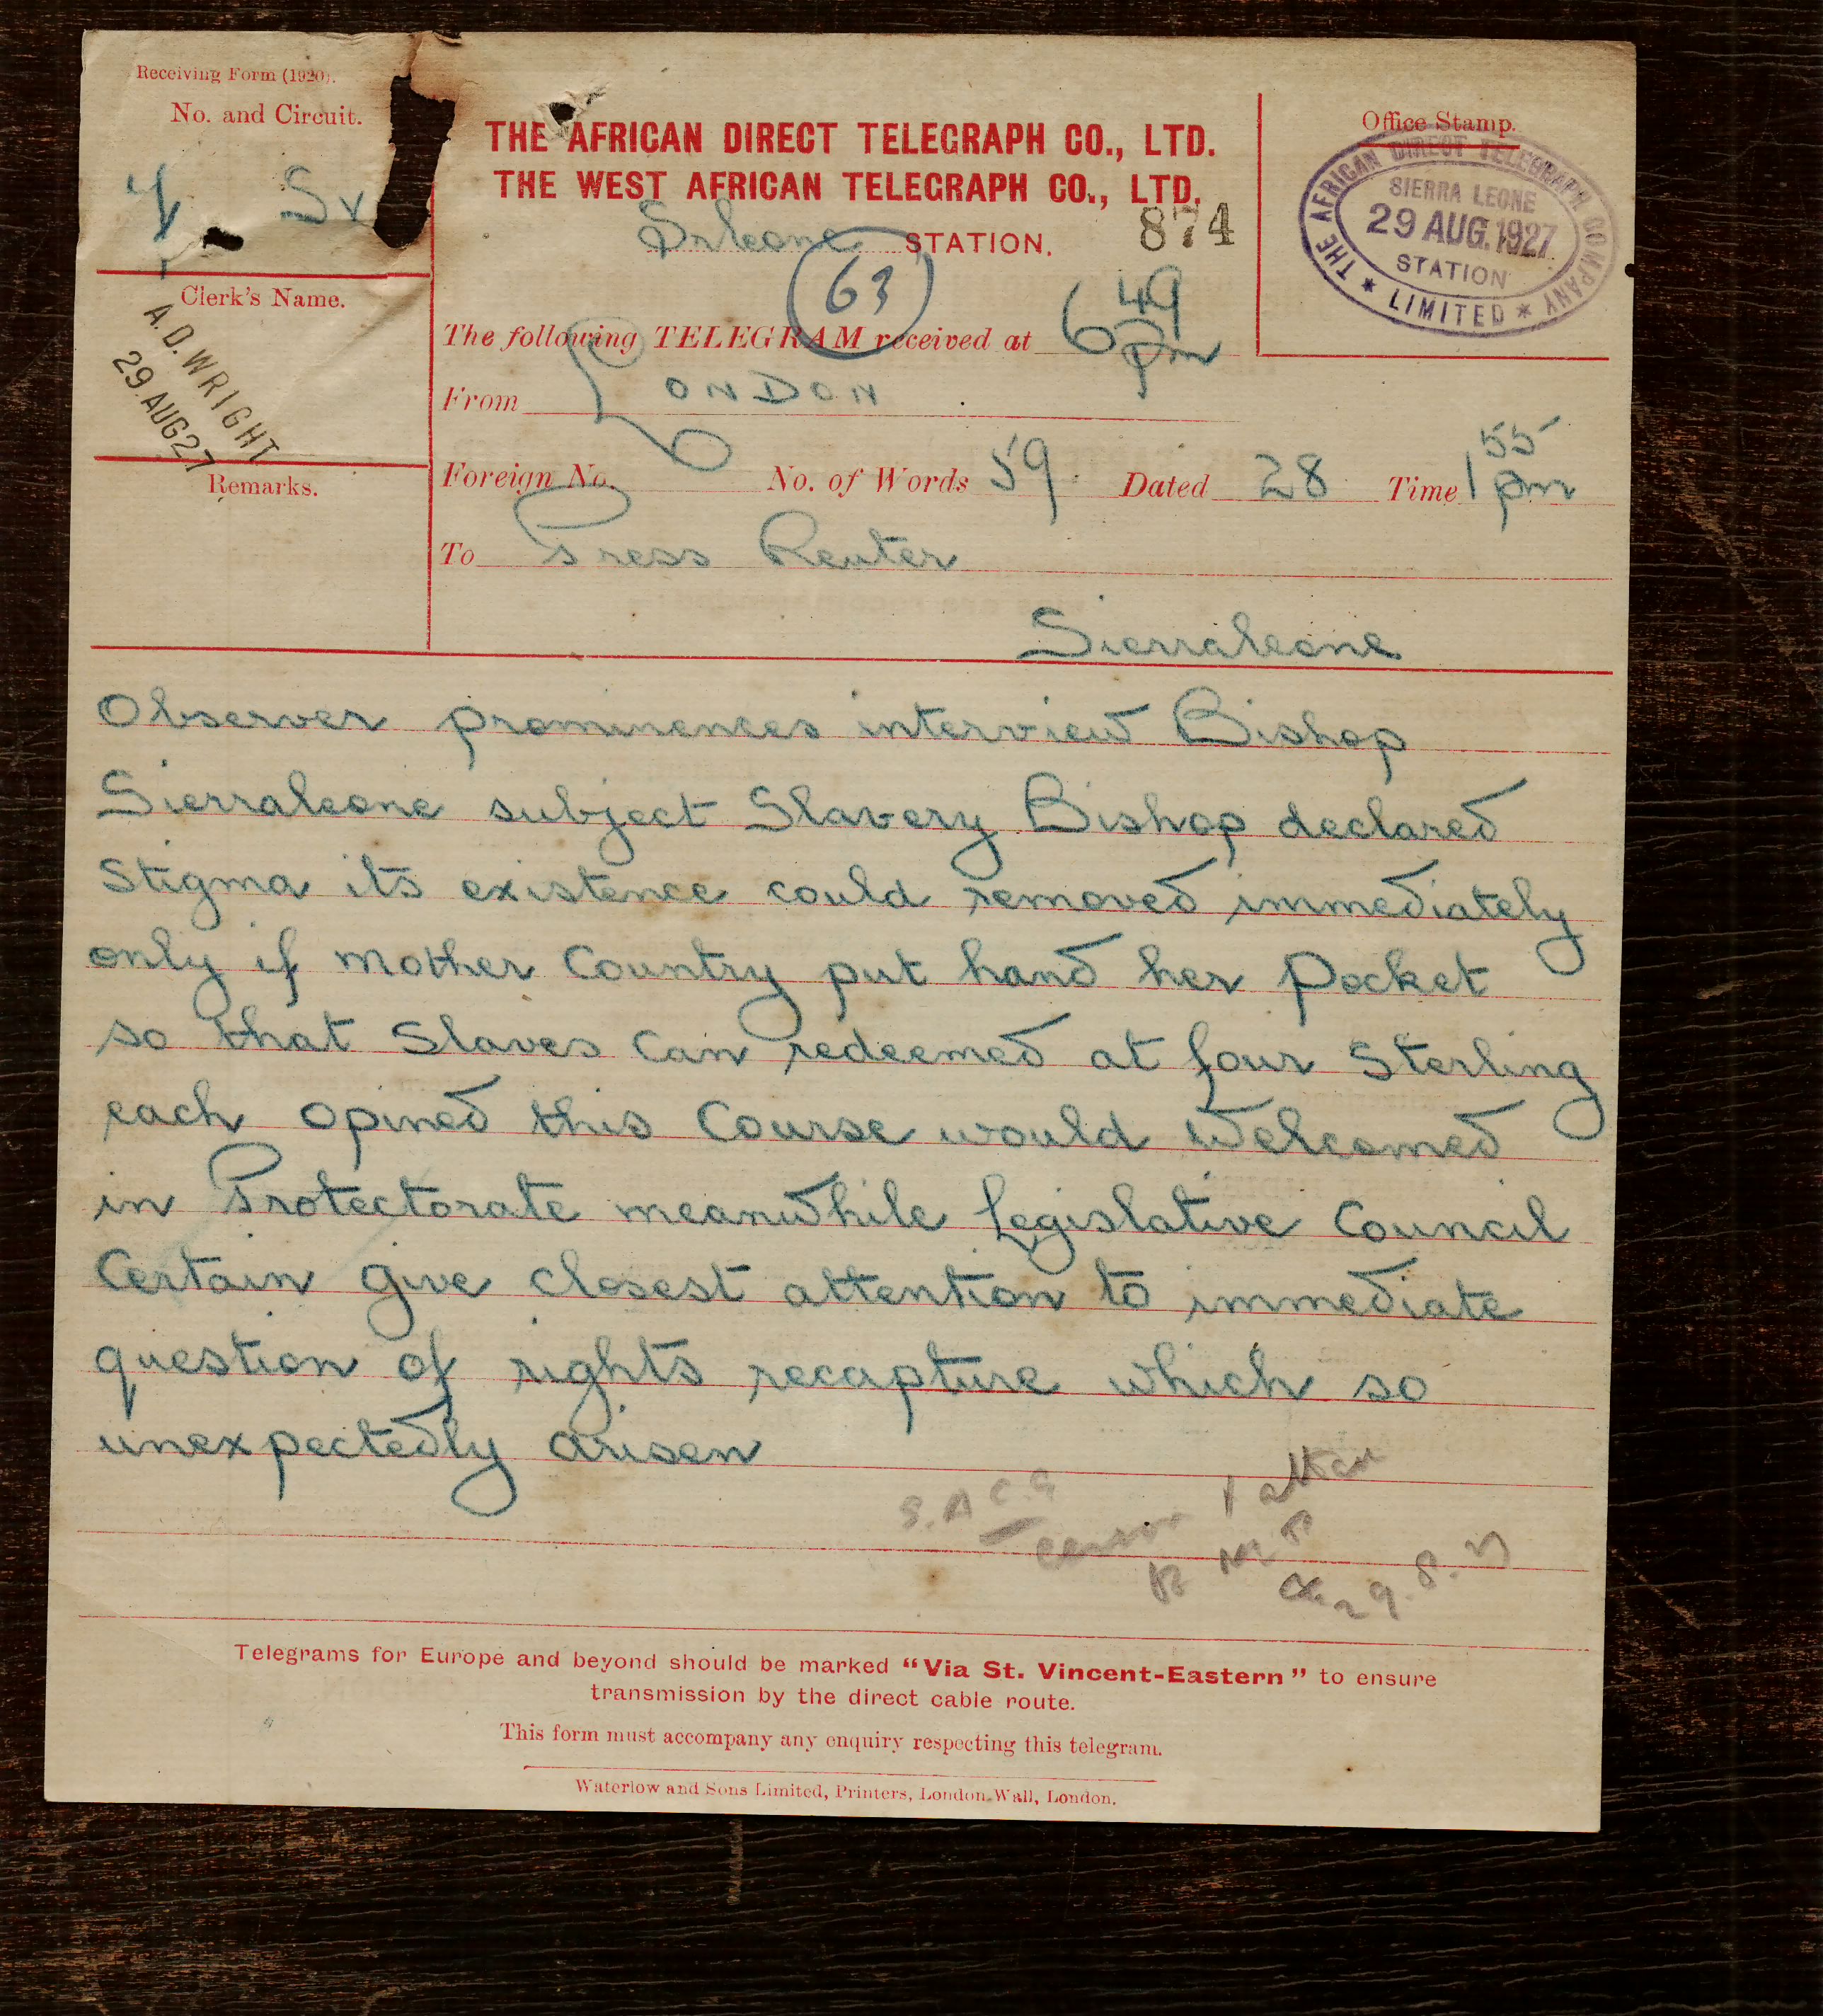 Receiving Form (1920).
No. and Circuit.
Sv
THE AFRICAN DIRECT TELEGRAPH CO., LTD.
THE WEST AFRICAN TELEGRAPH CO., LTD.
Srleone STATION. 874
63
Office Stamp.
THE AFRICAN DIRECT TELEGRAPH COMPANY
SIERRA LEONE
29 AUG. 1927
STATION
* LIMITED *
Clerk's Name.
A.D. WRIGHT
29.AUG27
Remarks.
The following TELEGRAM received at 6 49 pm
From LONDON
Foreign No. No. of Words 59 Dated 28 Time 1 55 pm
To Press Reuter
Sierraleone
Observer prominences interview Bishop
Sierraleone subject Slavery Bishop declared
Stigma its existence could removed immediately
only if Mother Country put hand her Pocket
so that Slaves Can redeemed at four Sterling
each opined this Course would Welcomed
in Protectorate meanwhile Legislative Council
Certain give closest attention to immediate
question of rights recapture which so
unexpectedly arisen
29.8.27
Telegrams for Europe and beyond should be marked “Via St. Vincent-Eastern” to ensure
transmission by the direct cable route.
This form must accompany any enquiry respecting this telegram.
Waterlow and Sons Limited, Printers, London Wall, London.